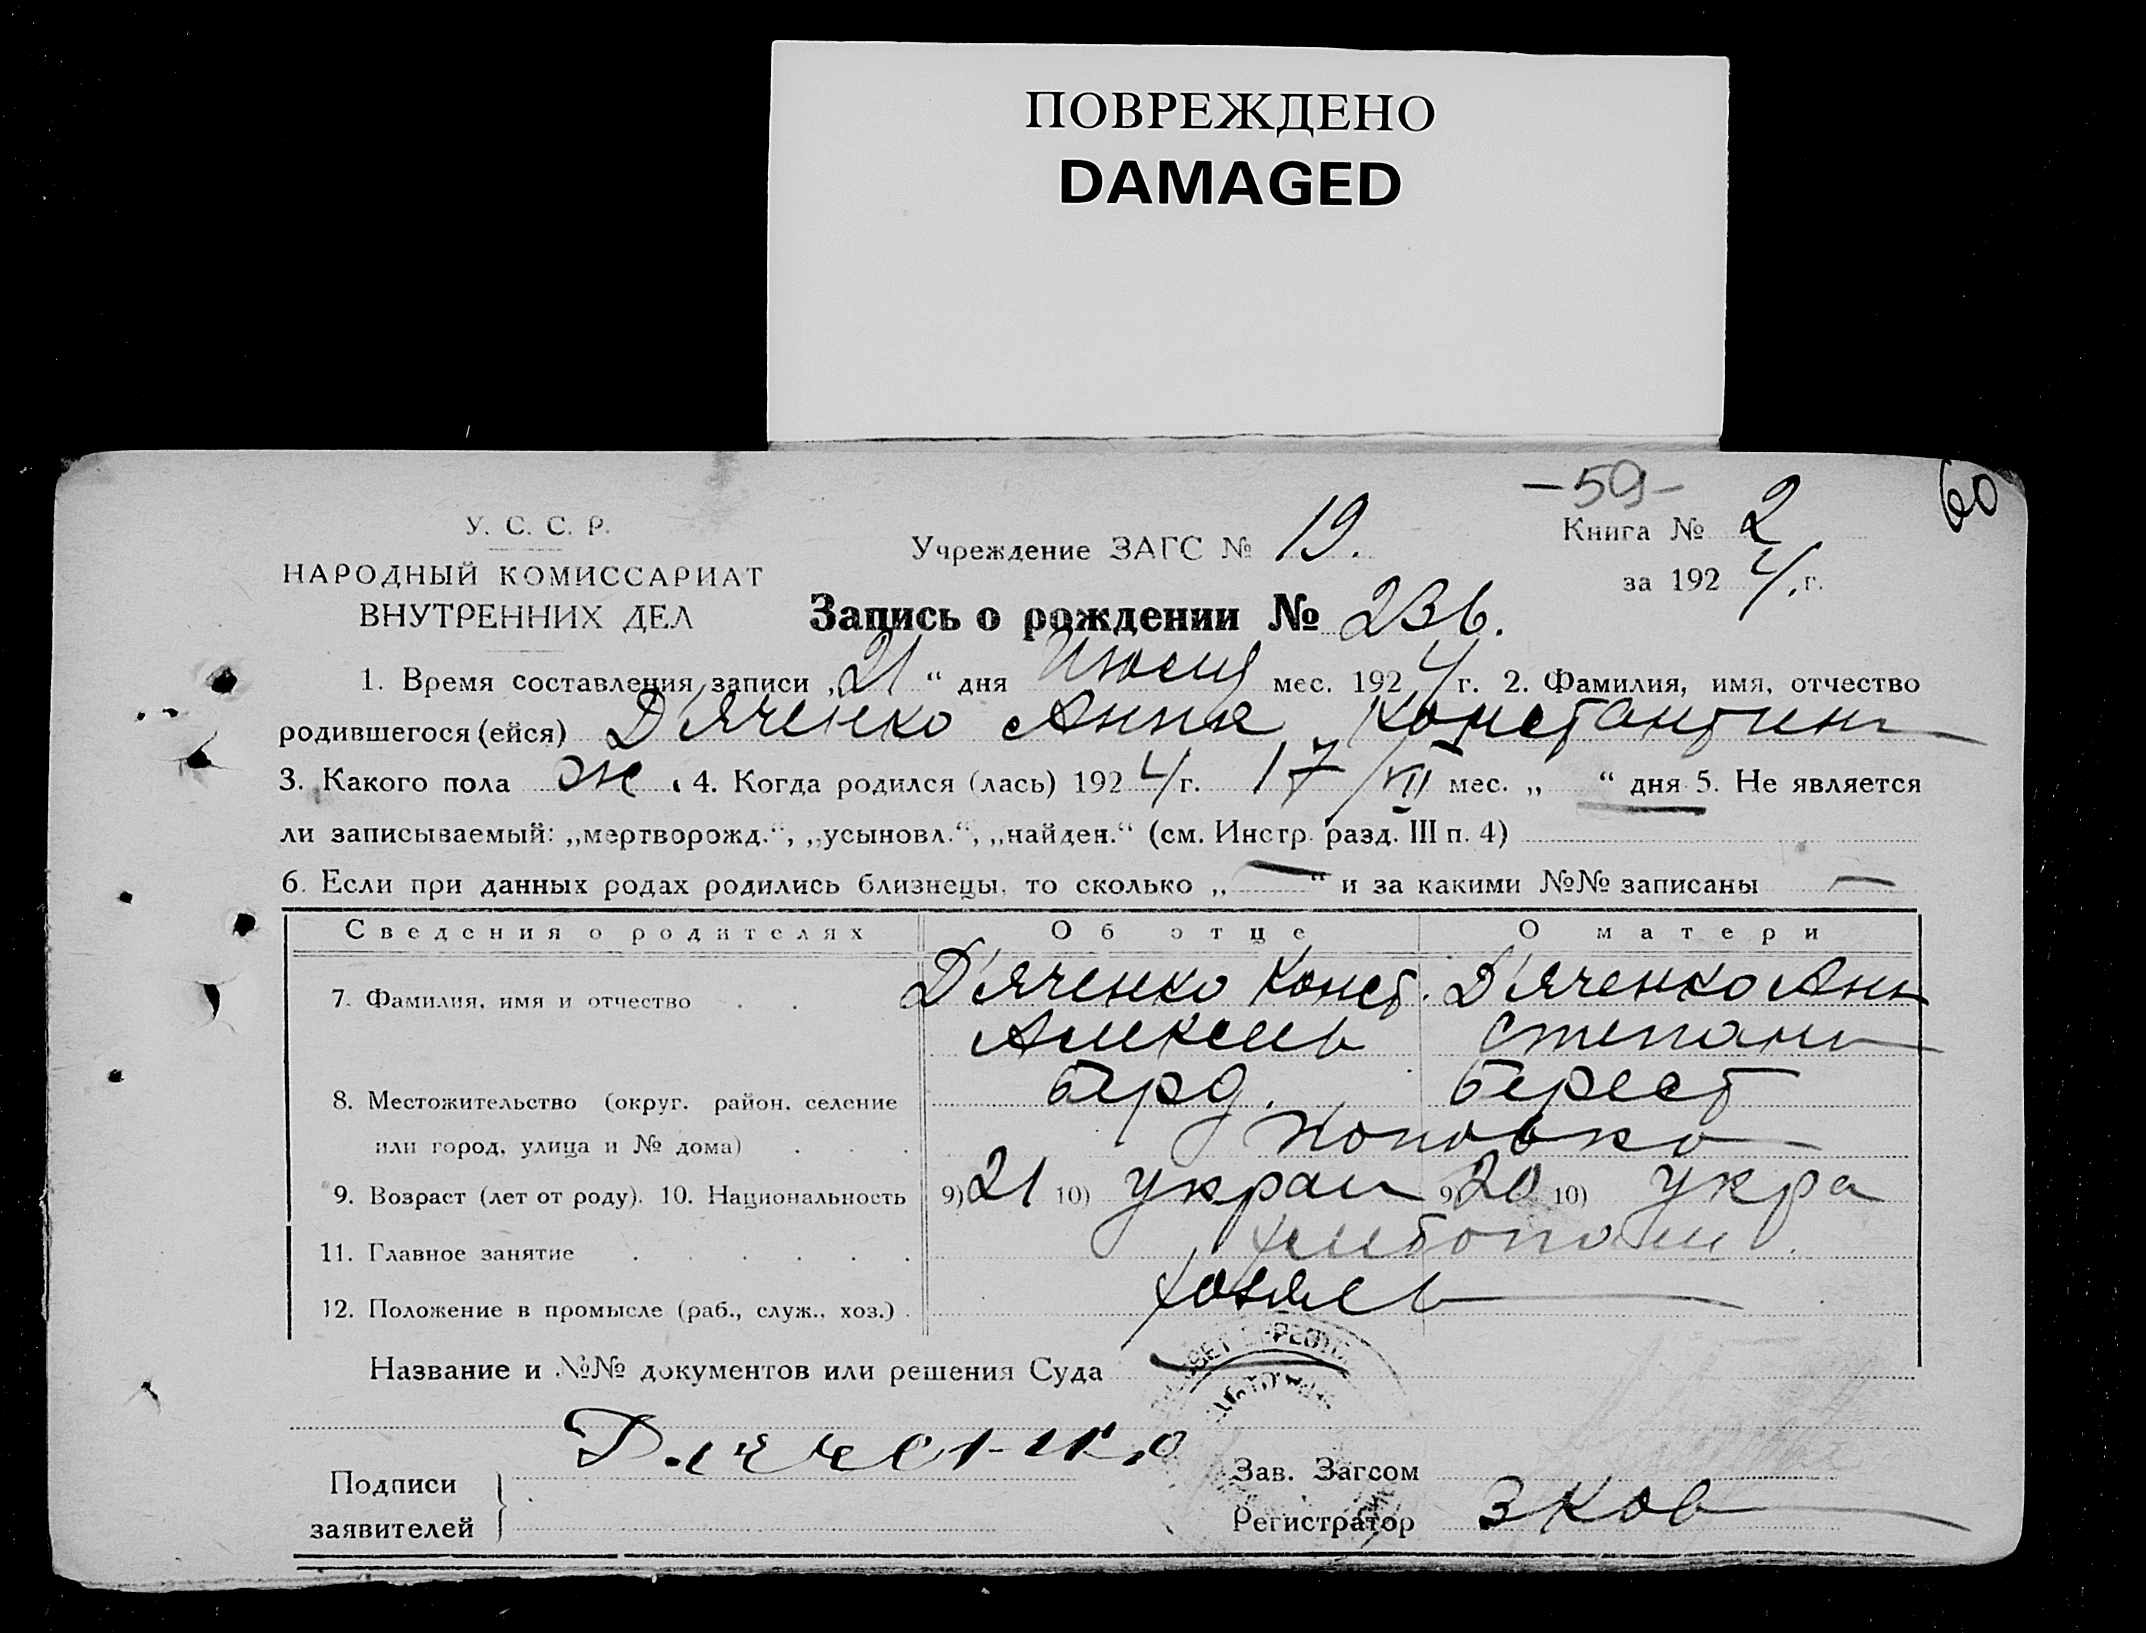 ПОВРЕЖДЕНО
DAMAGED
-59-
60
У. С. С. Р.
НАРОДНЫЙ КОМИССАРИАТ
ВНУТРЕННИХ ДЕЛ
Учреждение ЗАГС № 19.
Книга № 2
за 1924 г.
Запись о рождении № 236.
1. Время составления записи „21“ дня Июля мес. 1924 г. 2. Фамилия, имя, отчество
родившегося (ейся) Д'яченко Анна Константин
3. Какого пола ж. 4. Когда родился (лась) 1924 г. 17/VII мес. „ “ дня 5. Не является
ли записываемый: „мертворожд.“, „усыновл.“, „найден.“ (см. Инстр. разд. III п. 4)
6. Если при данных родах родились близнецы, то сколько „—“ и за какими №№ записаны —
Сведения о родителях Об отце О матери
7. Фамилия, имя и отчество . . Д'яченко Конст. Д'яченко Анн
Алексеев Степан
8. Местожительство (округ, район, селение Берд. Берест
или город, улица и № дома) . . .
9. Возраст (лет от роду). 10. Национальность 9) 21 10) украи 9) 20 10) укра
11. Главное занятие . . . . . . хлебопаш.
12. Положение в промысле (раб., служ., хоз.) . хозяев
Название и №№ документов или решения Суда
Дяченко
Подписи
заявителей
Зав. Загсом
Регистратор